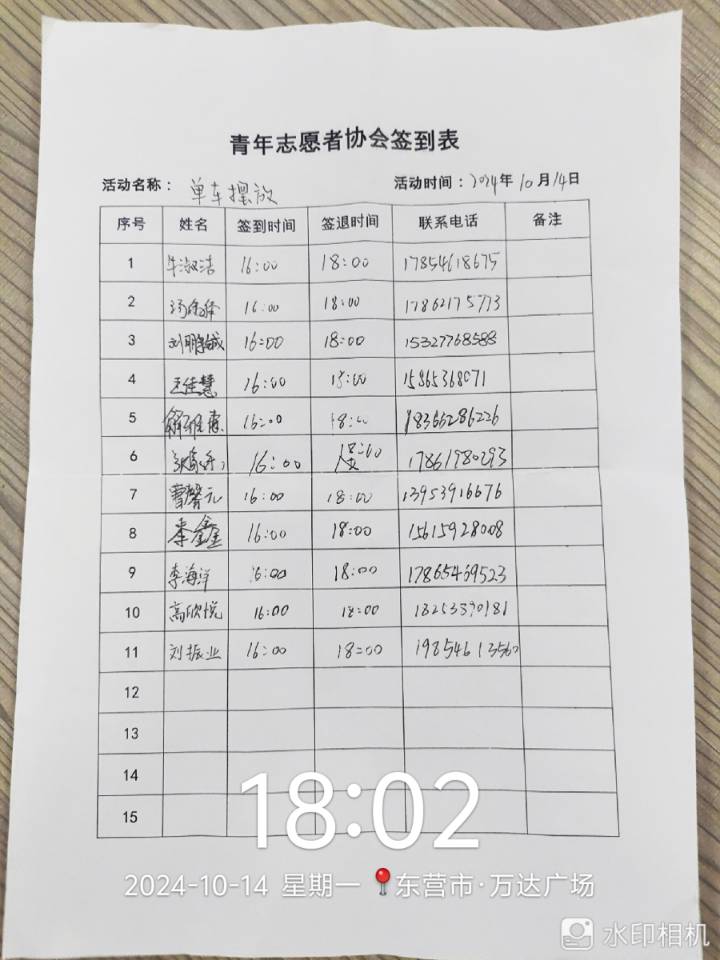 青年志愿者协会签到表
活动名称： 单车摆放 活动时间：2024年10月14日
序号 姓名 签到时间 签退时间 联系电话 备注
1 牛淑洁 16:00 18:00 17854618675
2 16:00 18:00 17862175773
3 刘鹏铖 16:00 18:00 15327768588
4 王佳慧 16:00 18:00 15865368071
5 16:00 18:00 18366286226
6 16:00 17861980293
7 曹馨元 16:00 18:00 13953916676
8 李鑫 16:00 18:00 15615928008
9 李海洋 16:00 18:00 17865469523
10 高欣悦 16:00 18:00 18253390181
11 刘振业 16:00 18:00 19854613560
12
13
14
15
18:02
2024-10-14 星期一 东营市·万达广场
水印相机